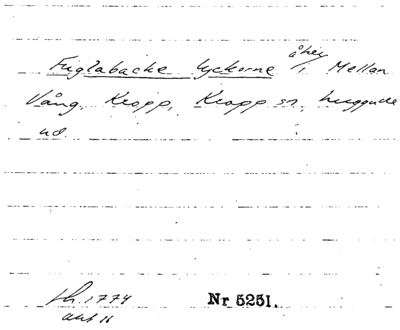 Fuglabacke lyckorne åker i Mellan
Vång, Kropp, Kropp sn, Luggude
hd
Lh. 1774
akt 11
Nr 5251.